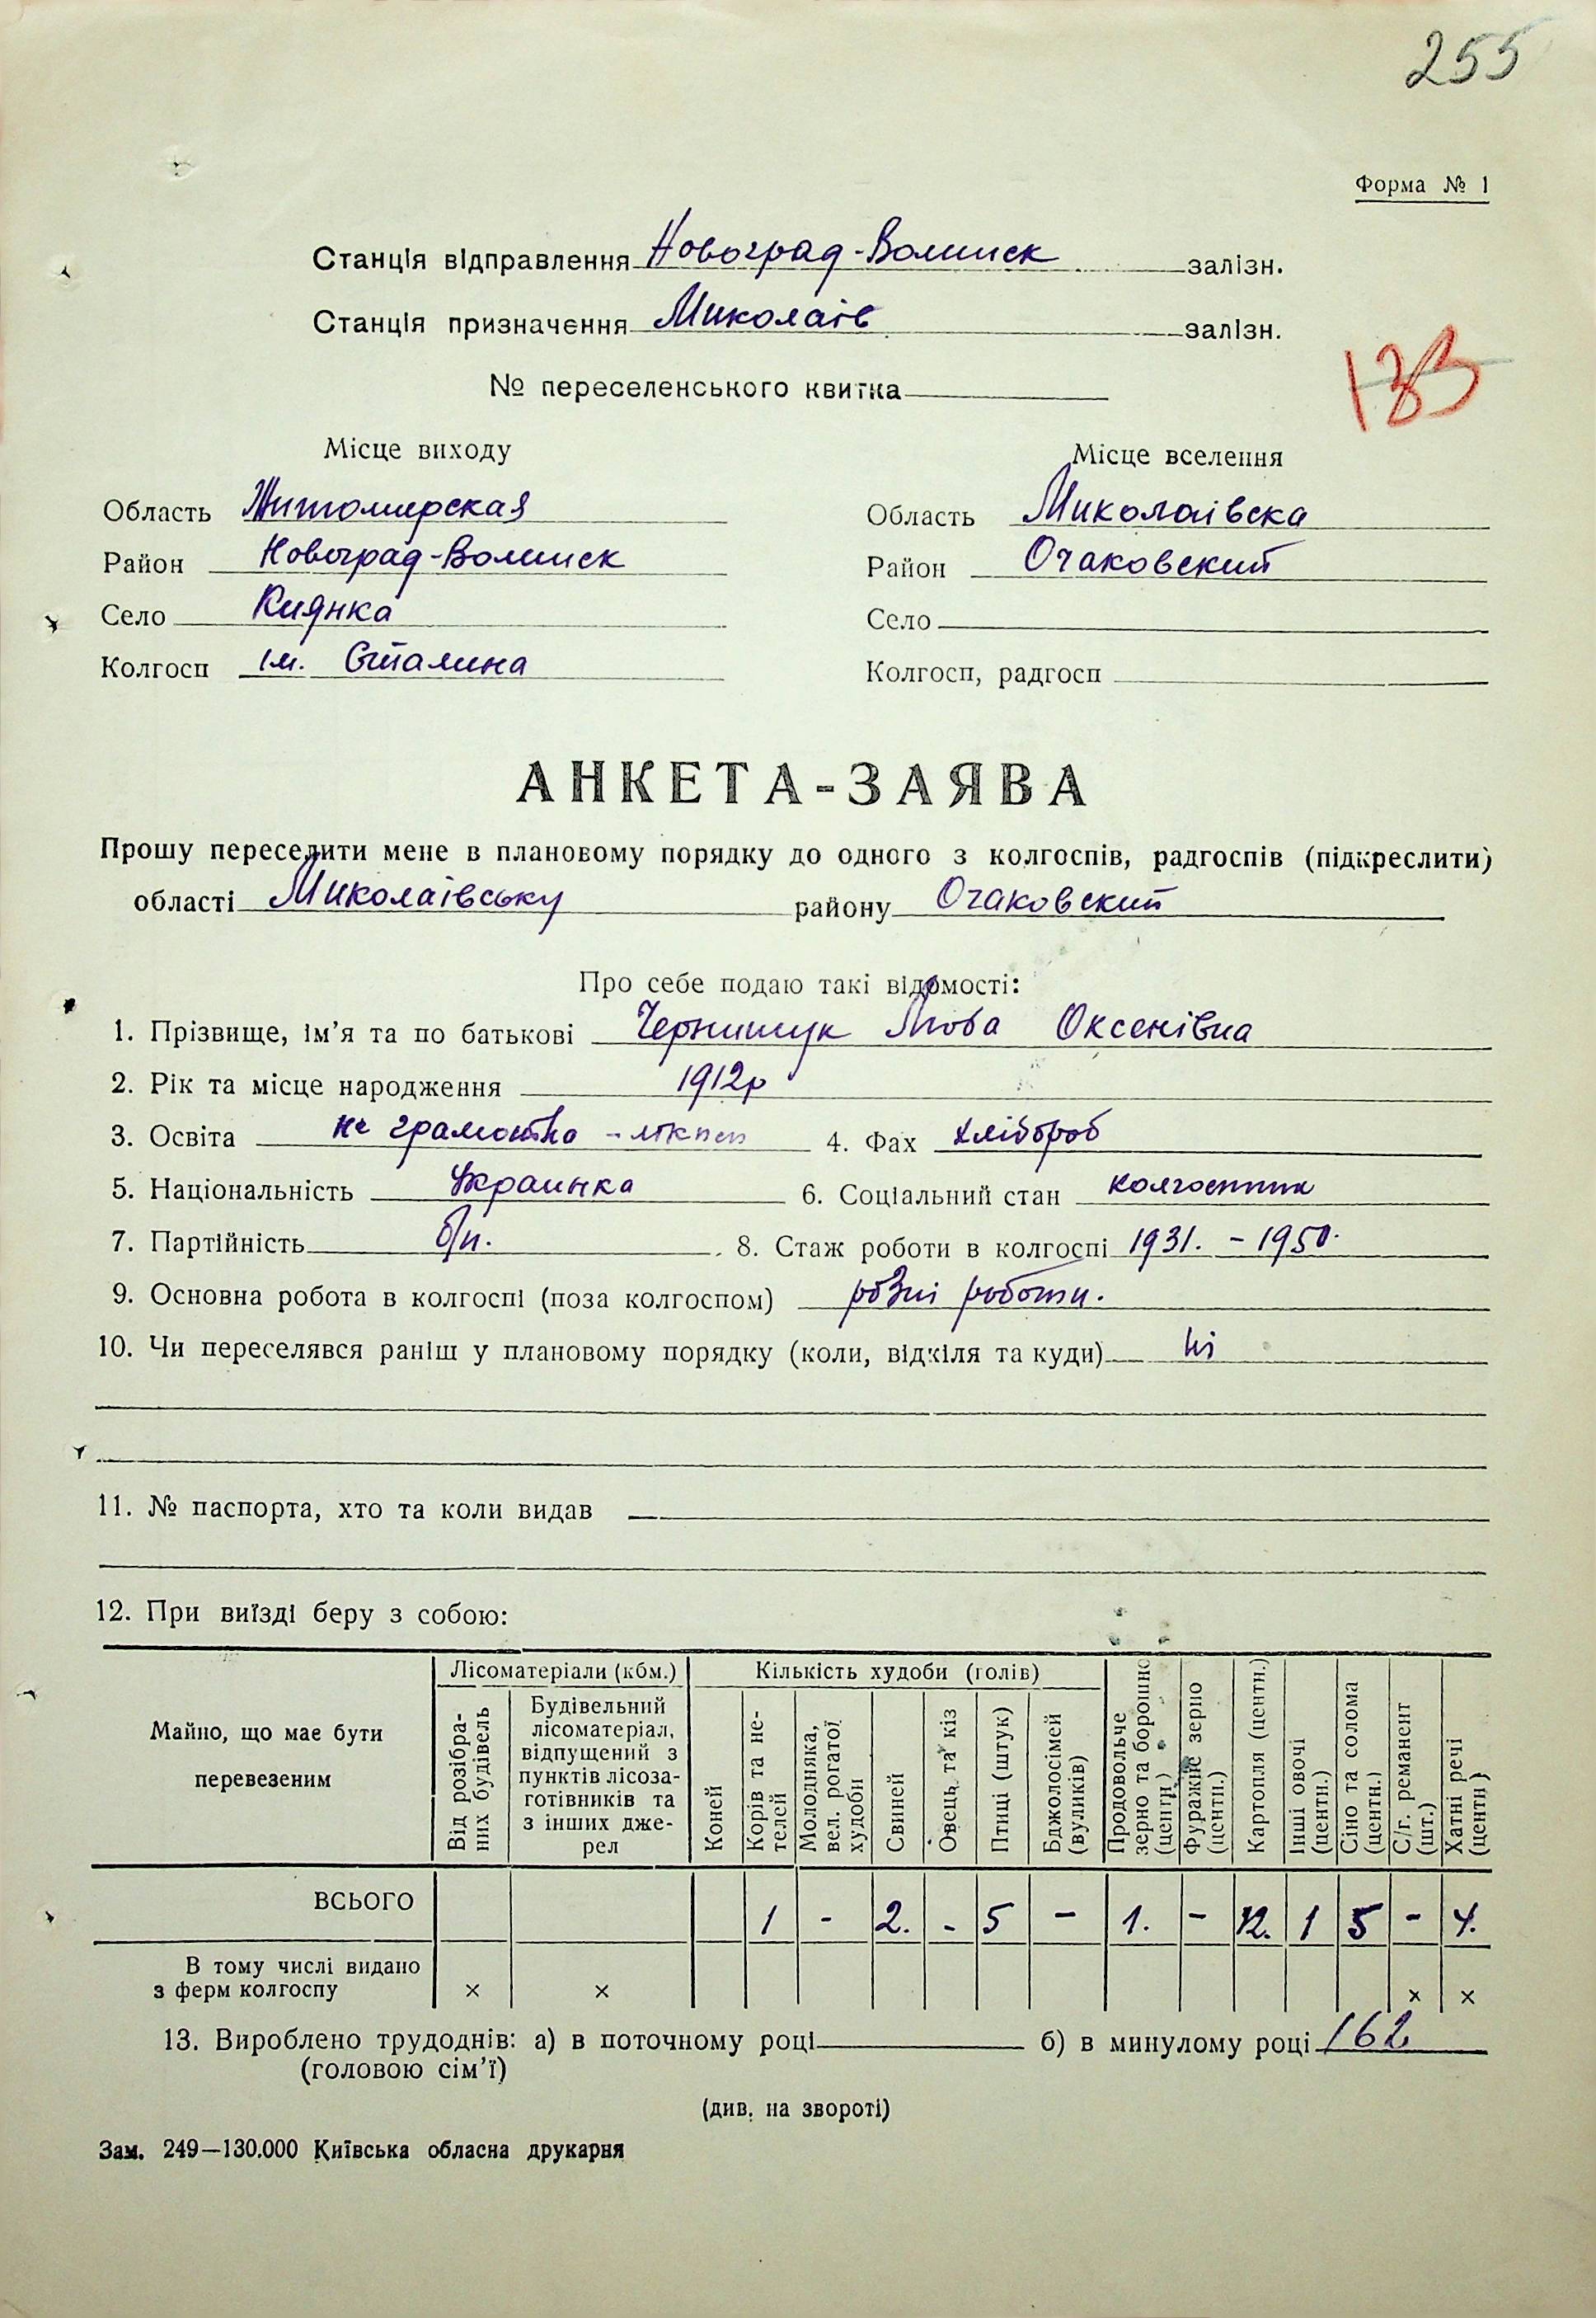 255
Форма № 1
Станція відправлення Новоград-Волинск залізн.
Станція призначення Миколаів залізн.
133
№ переселенського квитка
Місце виходу
Область Житомирская
Район Новоград-Волинск
Село Киянка
Колгосп ім. Сталина
Місце вселення
Область Миколаівска
Район Очаковский
Село
Колгосп, радгосп
АНКЕТА-ЗАЯВА
Прошу переселити мене в плановому порядку до одного з колгоспів, радгоспів (підкреслити)
області Миколаівську району Очаковский
Про себе подаю такі відомості:
1. Прізвище, ім'я та по батькові Чернишук Люба Оксенівна
2. Рік та місце народження 1912р
3. Освіта не грамотна - 4. Фах хлібороб
5. Національність Украинка 6. Соціальний стан колгоспник
7. Партійність б/п. 8. Стаж роботи в колгоспі 1931. - 1950.
9. Основна робота в колгоспі (поза колгоспом) розні роботи.
10. Чи переселявся раніш у плановому порядку (коли, відкіля та куди) ні
11. № паспорта, хто та коли видав
12. При виїзді беру з собою:
Майно, що має бути перевезеним
Лісоматеріали (кбм.)
Від розібраних будівель
Будівельний лісоматеріал, відпущений з пунктів лісозаготівників та з інших джерел
Кількість худоби (голів)
Коней
Корів та нетелей
Молодняка, вел. рогатої худоби
Свиней
Овець та кіз
Птиці (штук)
Бджолосімей (вуликів)
Продовольче зерно та борошно (центн.)
Фуражне зерно (центн.)
Картопля (центн.)
Інші овочі (центн.)
Сіно та солома (центн.)
С/г. реманент (шт.)
Хатні речі (центн)
ВСЬОГО 1 - 2. - 5 - 1. - 12. 1 5 - 4.
В тому числі видано з ферм колгоспу × × × ×
13. Вироблено трудоднів: а) в поточному році б) в минулому році 162
(головою сім'ї)
(див. на звороті)
Зам. 249—130.000 Київська обласна друкарня